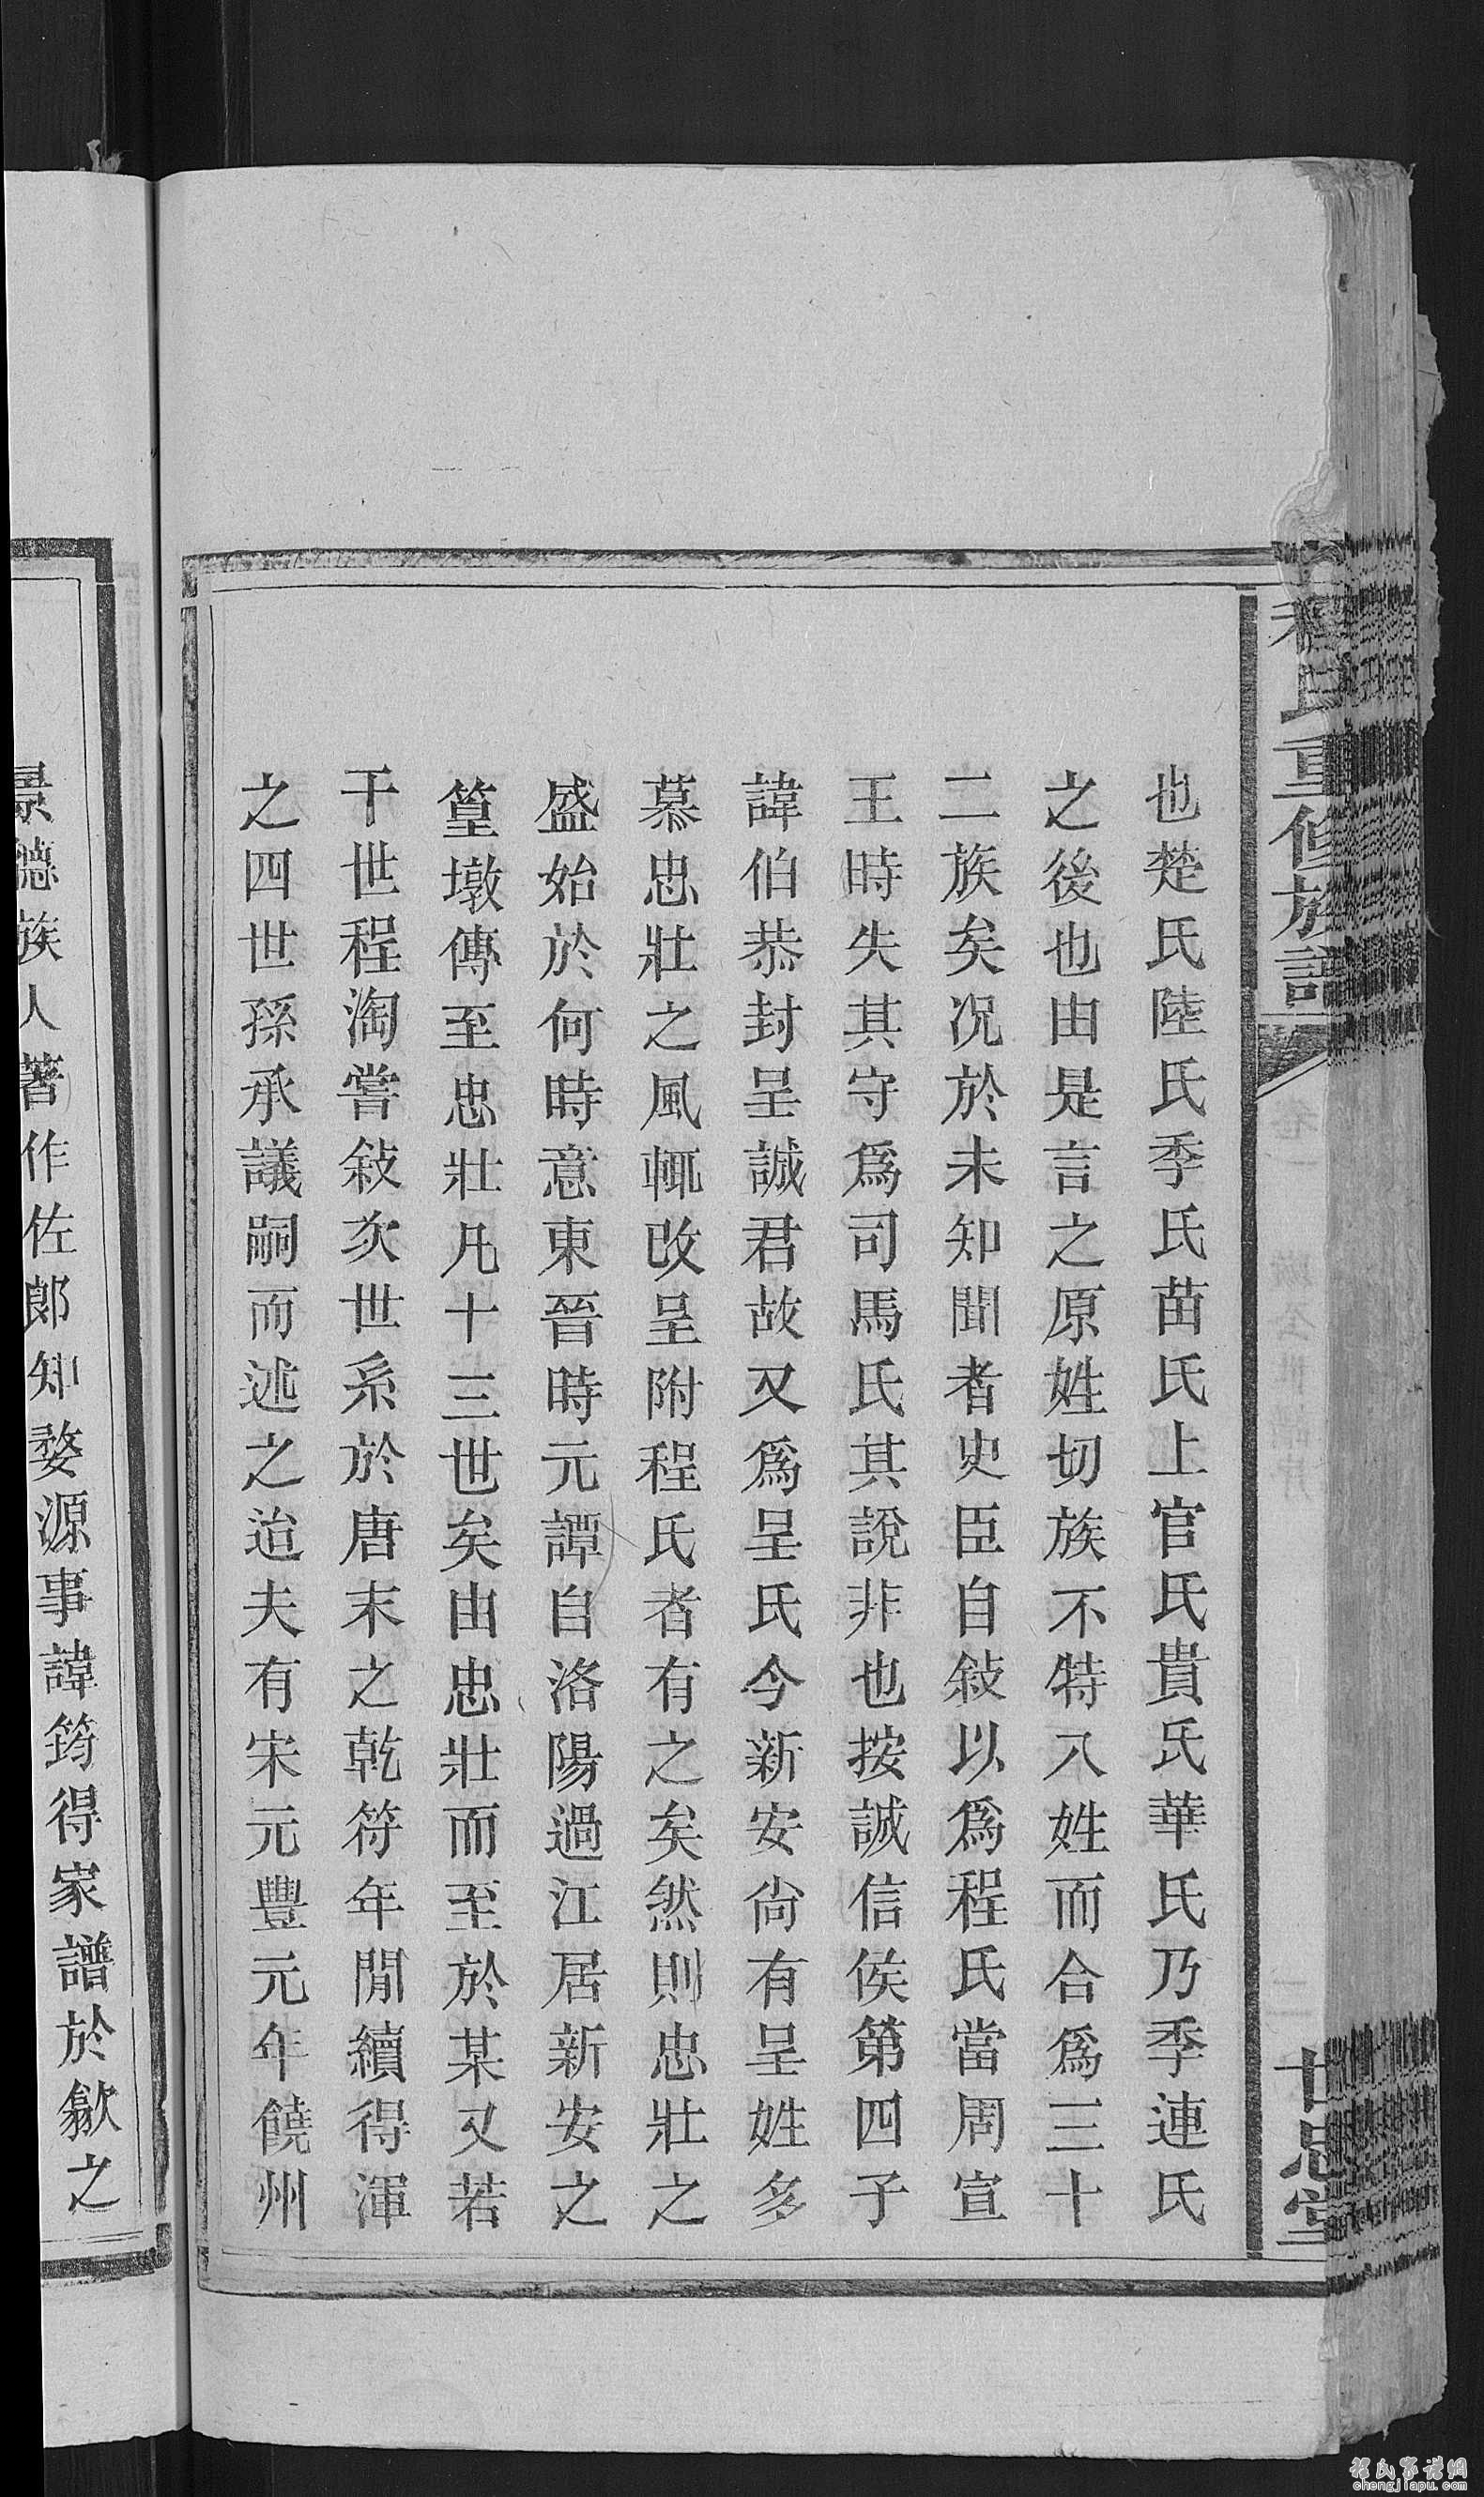 程氏重修族譜
世忠堂
也楚氏陸氏季氏苗氏上官氏貴氏華氏乃季連氏
之後也由是言之原姓切族不特入姓而合為三十
二族矣况於未知聞者史臣自敍以為程氏當周宣
王時失其守為司馬氏其說非也按誠信侯第四子
諱伯恭封呈誠君故又為呈氏今新安尙有呈姓多
慕忠壯之風輒改呈附程氏者有之矣然則忠壯之
盛始於何時意東晉時元譚自洛陽過江居新安之
篁墩傳至忠壯凡十三世矣由忠壯而至於某又若
干世程淘嘗敍次世系於唐末之乾符年閒續得渾
之四世孫承議嗣而述之迨夫有宋元豐元年饒州
景德族人著作佐郞知婺源事諱筠得家譜於歙之
程氏家譜網
chengjiapu.com